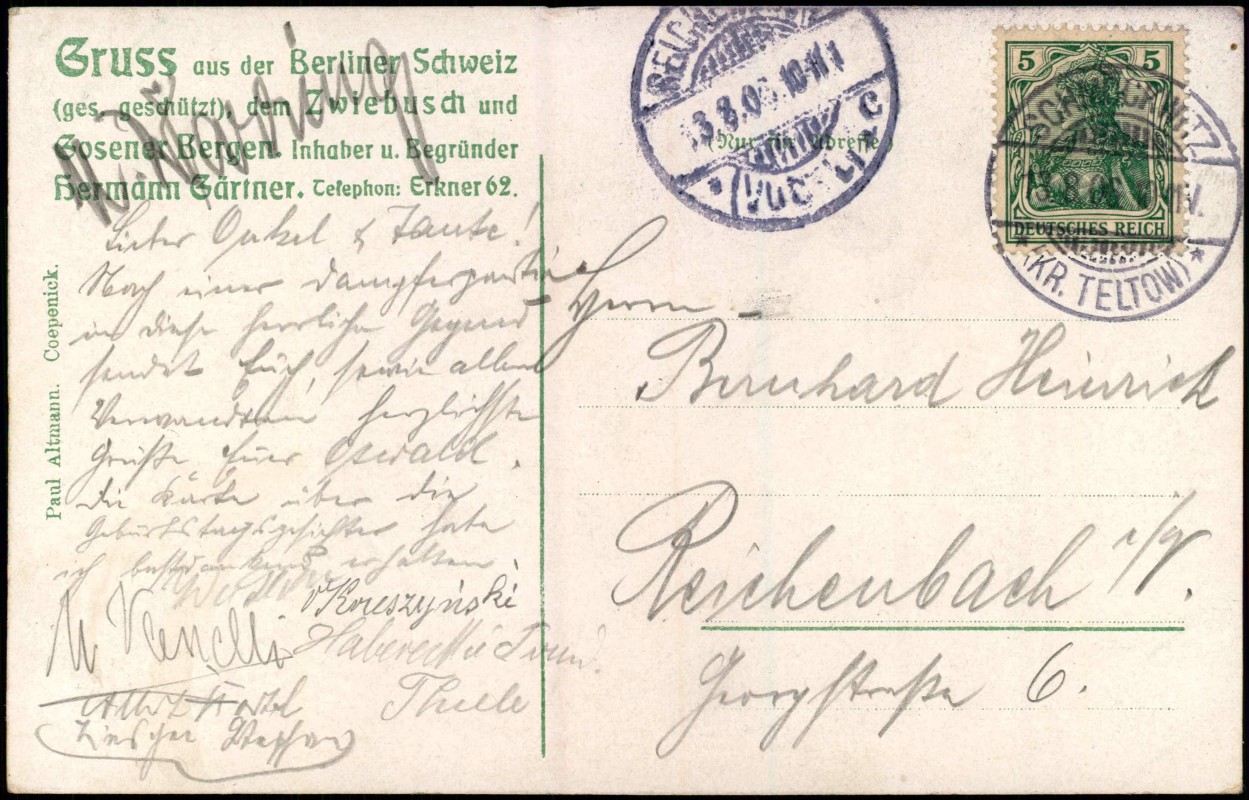 Gruss aus der Berliner Schweiz
(ges. geschützt), dem Zwiebusch und
Gosener Bergen. Inhaber u. Begründer
Hermann Gärtner. Telephon: Erkner 62.
Lieber Onkel & Tante!
Nach einer Dampferpartie
in diese herrliche Gegend
sendet Euch, sowie allen
Verwandten herzlichste
Grüße, Euer Oswald.
Die Karte über die
habe
ich erhalten
Thiele
Stephan
Paul Altmann. Coepenick.
(Nur für die Adresse)
REICHENBACH
13.8.06.10-11V
(VOGTL.) * c
5 5
DEUTSCHES REICH
SCHMÖCKWITZ
13.8.06
* (KR. TELTOW) *
Herrn
Bernhard Heinrich
Reichenbach i/V.
Georgstraße 6.